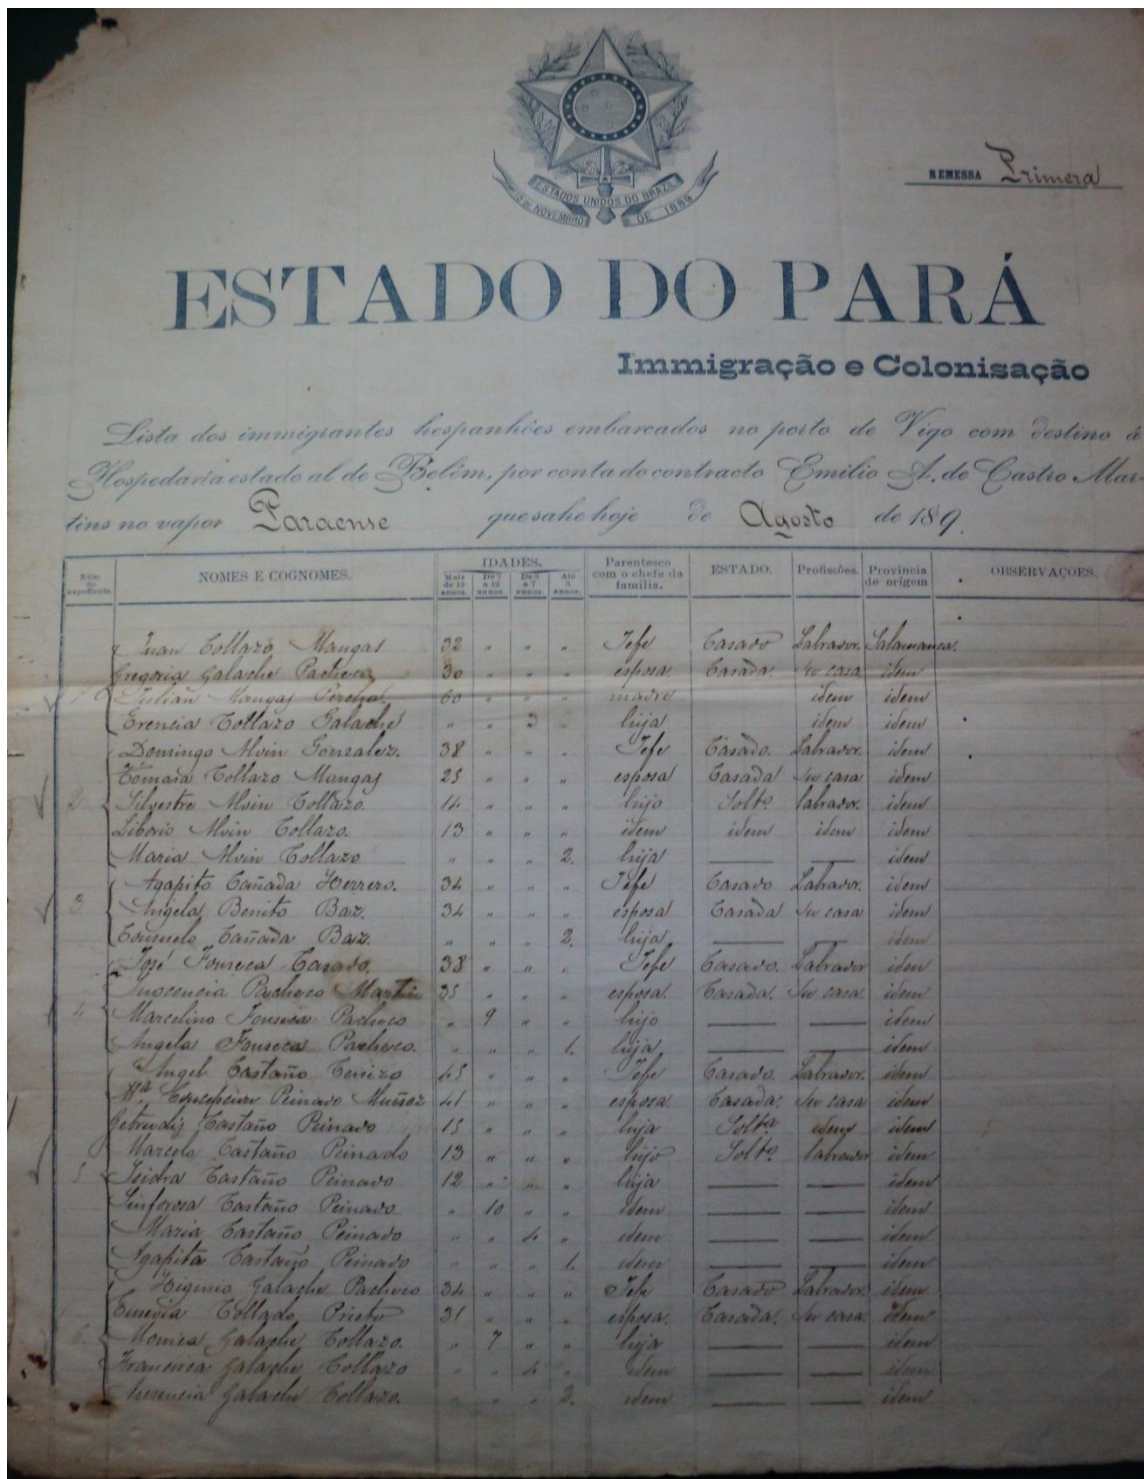 ESTADOS UNIDOS DO BRAZIL
15 DE NOVEMBRO DE 1889
REMESSA Primera
ESTADO DO PARÁ
Immigração e Colonisação
Lista dos immigrantes hespanhões embarcados no porto de Vigo com destino á
Hospedaria estado al de Belêm, por conta do contracto Emilio A. de Castro Mar-
tins no vapor Paraense que sahe hoje de Agosto de 189
Núm. de expediente. NOMES E COGNOMES. IDADES. Mais de 12 annos. De 7 a 12 annos. De 3 a 7 annos. Até 3 annos. Parentesco com o chefe da familia. ESTADO. Profissões. Provincia de origem OBSERVAÇOES.
Juan Collazo Mangas 32 " " " Jefe Casado Labrador. Salamanca.
Gregoria Galache Pacheco 30 " " " esposa Casada. Su casa idem
1 Mangas 60 " " " madre idem idem
Collazo Galache " " 3 " hija idem idem
Domingo Alvin Gonzalez. 38 " " " Jefe Casado. Labrador. idem
Tomasa Collazo Mangas 25 " " " esposa Casada Su casa idem
2 Silvestre Alvin Collazo. 14 " " " hijo Solto. labrador. idem
Liborio Alvin Collazo. 13 " " " idem idem idem idem
Maria Alvin Collazo " " " 2. hija idem
Agapito Cañada Herrero. 34 " " " Jefe Casado Labrador. idem
3 Angela Benito Baz. 34 " " " esposa Casada Su casa idem
Consuelo Cañada Baz. " " " 2. hija idem
José Fonseca Casado. 38 " " " Jefe Casado. Labrador idem
Inocencia Pacheco Martin 35 " " " esposa. Casada. Su casa. idem
4 Marcelino Fonseca Pacheco " 9 " " hijo idem
Angela Fonseca Pacheco. " " " 1. hija idem
Angel Castaño 45 " " " Jefe Casado. Labrador. idem
Mª Concepcion Peinado Muñoz 41 " " " esposa Casada. Su casa idem
Getrudiz Castaño Peinado 15 " " " hija Solta idem idem
Marcelo Castaño Peinado 13 " " " hijo Solto. labrador idem
5 Isidra Castaño Peinado 12 " " " hija idem
Sinforosa Castaño Peinado " 10 " " idem idem
Maria Castaño Peinado " " 4 " idem idem
Agapita Castaño Peinado " " " 1. idem idem
Higinio Galache Pacheco 34 " " " Jefe Casado Labrador. idem
Eusevia Collado Prieto 31 " " " esposa. Casada. Su casa. idem
6 Monica Galache Collazo. " 7 " " hija idem
Francisca Galache Collazo " " 4 " idem idem
Galache Collazo. " " " 2. idem idem